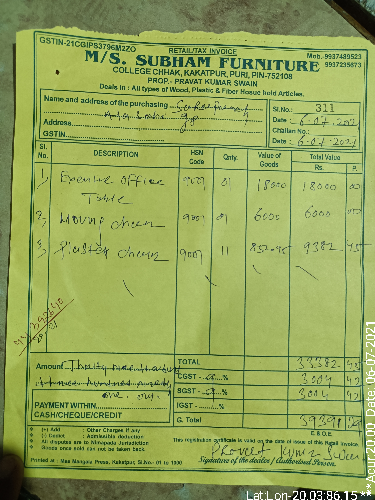 GSTIN-21CGIPS3796M2ZO
RETAIL/TAX INVOICE
Mob. 9937489523
9937235873
M/S. SUBHAM FURNITURE
COLLEGE CHHAK, KAKATPUR, PURI, PIN-752108
PROP.- PRAVAT KUMAR SWAIN
Deals in : All types of Wood, Plastic & Fiber Hosue hold Articles.
Name and address of the purchasing
Address
GSTIN
Sl.No.: 311
Date : 6-07-2021
Challan No.:
Date : 6-07-2021
Sl. No. DESCRIPTION HSN Code Qnty. Value of Goods Total Value Rs. P.
1) Executive office Table 9001 01 18000 18000 00
2) 9001 01 6000 6000 00
3) 9001 11 852-95 9382 45
Amount
TOTAL 33382.45
CGST % 3004 42
SGST % 3004 42
IGST %
PAYMENT WITHIN
CASH/CHEQUE/CREDIT
G. Total 39391 29
(+) Add : Other Charges if any
(-) Deduct : Admissible deduction
All deputes are to Nimapada Jurisdiction
Goods once sold can not be taken back.
E.& O.E.
This registration certificate is valid on the date of issue of this Retail invoice
Pravat Kumar Swain
Signature of the dealer / Authorised Person.
Printed at : Maa Mangala Press, Kakatpur, Sl.No.-01 to 1000
Lat:Lon-20.03:86.15
06-07-2021